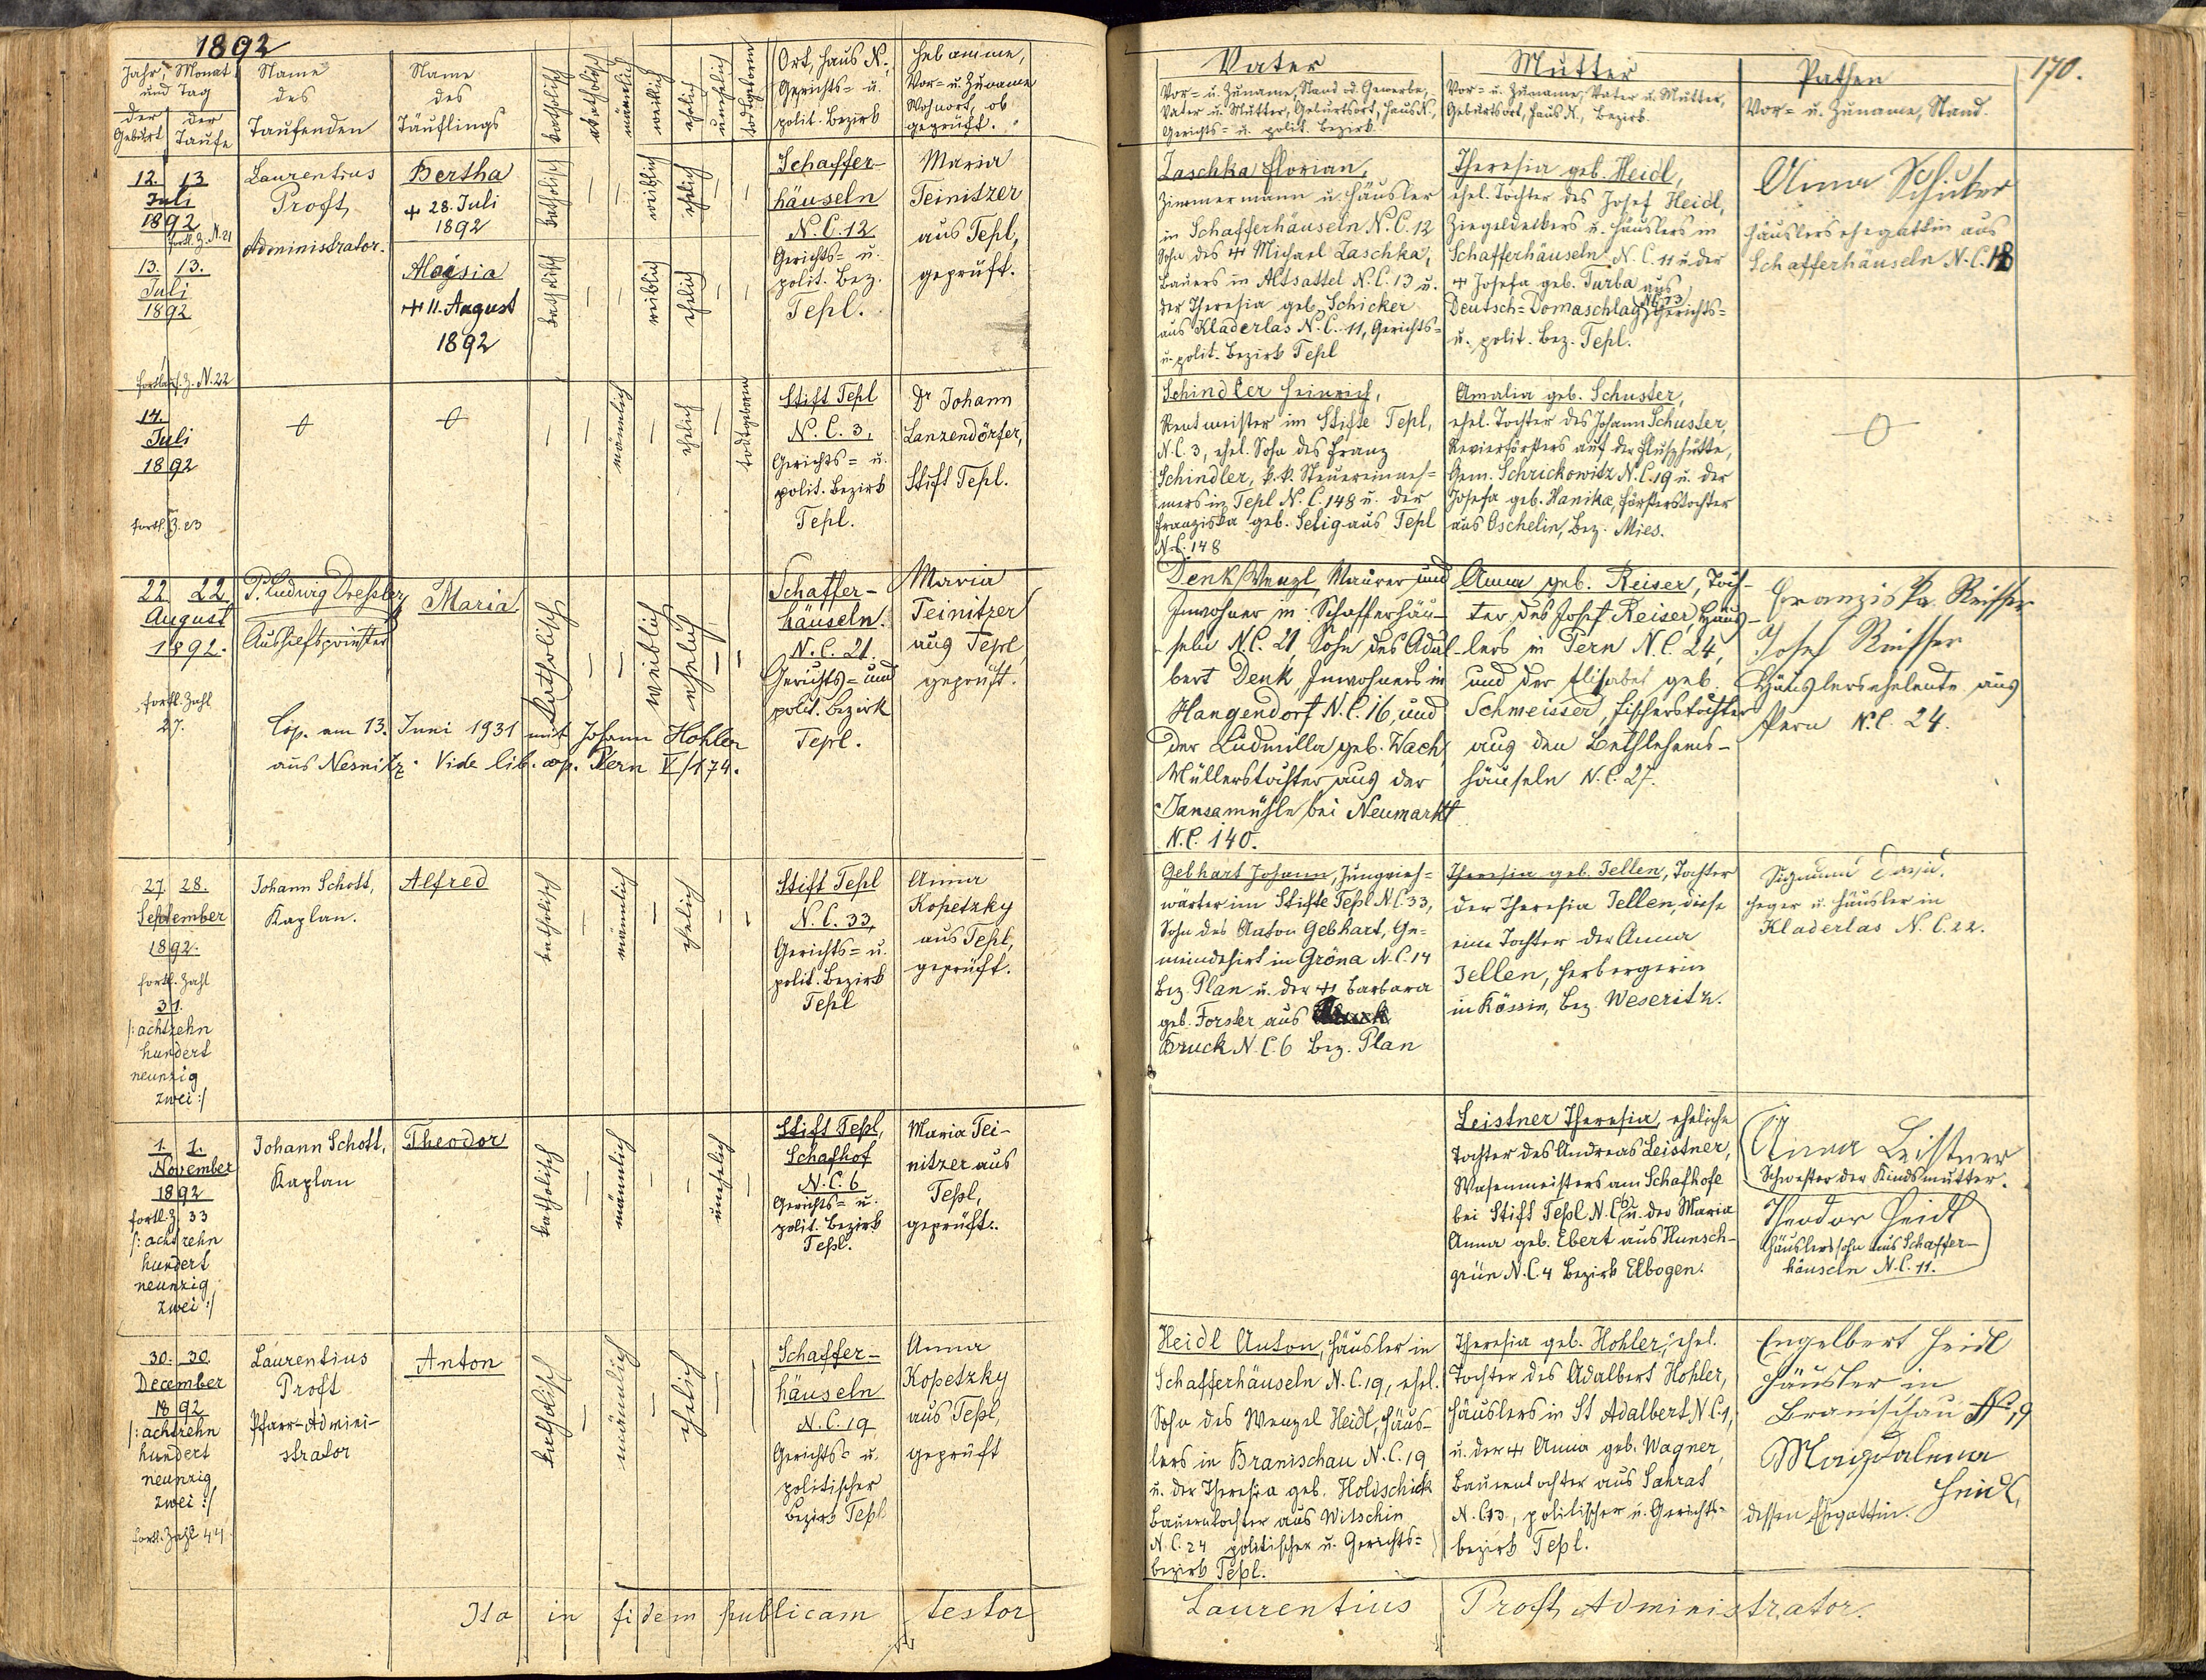 1892
Jahr, Monat
und Tag
der
Geburt
der
Taufe
Name
des
Taufenden
Name
des
Täuflings
katholisch
akatholisch
männlich
weiblich
ehelich
unehelich
todtgeboren
Ort, Haus N.,
Gerichts- u.
polit. Bezirk
Hebamme,
Vor- u. Zuname
Wohnort, ob
geprüft.
12. 13
Juli
1892
fortl. Z. N. 21
13. 13.
Juli
1892
Laurentius
Proft,
Administrator.
Bertha
+ 28. Juli
1892
Aloisia
+ 11. August
1892
katholisch
weiblich
ehelich
katholisch
weiblich
ehelich
Schaffer-
häuseln
N. C. 12
Gerichts- u.
polit. Bez.
Tepl.
Maria
Teinitzer
aus Tepl,
geprüft.
fortlauf. Z. N. 22
14.
Juli
1892
fortl. Z. 23
männlich
ehelich
todtgeboren
Stift Tepl
N. C. 3,
Gerichts- u.
polit. Bezirk
Tepl.
Dr Johann
Lanzendörfer,
Stift Tepl.
22. 22.
August
1892.
fortl. Zahl
27.
P. Ludwig Dressler,
Aushilfspriester
Maria
katholisch
weiblich
ehelich
Schaffer-
häuseln.
N. C. 21.
Gerichts- und
polit. Bezirk
Tepl.
Maria
Teinitzer
aus Tepl,
geprüft.
Cop. am 13. Juni 1931 mit Johann Hohler
aus Nesnitz. Vide lib. cop. Pern V/174.
27. 28.
September
1892.
fortl. Zahl
31.
/: achtzehn
hundert
neunzig
zwei :/
Johann Schott,
Kaplan.
Alfred
katholisch
männlich
ehelich
Stift Tepl
N. C. 33,
Gerichts- u.
polit. Bezirk
Tepl
Anna
Kopetzky
aus Tepl,
geprüft.
1. 1.
November
1892
fortl. Z. 33
/: achtzehn
hundert
neunzig
zwei :/
Johann Schott,
Kaplan
Theodor
katholisch
männlich
unehelich
Stift Tepl,
Schafhof
N. C. 6
Gerichts- u.
polit. Bezirk
Tepl.
Maria Tei-
nitzer aus
Tepl,
geprüft.
30. 30.
December
1892
/: achtzehn
hundert
neunzig
zwei :/
fortl. Zahl 44.
Laurentius
Proft
Pfarr-Admini-
strator
Anton
katholisch
männlich
ehelich
Schaffer-
häuseln
N. C. 19
Gerichts- u.
politischer
Bezirk Tepl
Anna
Kopetzky
aus Tepl,
geprüft
Ita in fidem publicam testor
170.
Vater
Vor- u. Zuname, Stand od. Gewerbe,
Vater u. Mutter, Geburtsort, Haus N.,
Gerichts- u. polit. Bezirk.
Mutter
Vor- u. Zuname, Vater u. Mutter,
Geburtsort, Haus N., Bezirk.
Pathen
Vor- u. Zuname, Stand.
Zaschka Florian,
Zimmermann u. Häusler
in Schafferhäuseln N. C. 12
Sohn des + Michael Zaschka,
Bauers in Altsattel N. C. 13 u.
der Theresia geb. Schicker
aus Kladerlas N. C. 11, Gerichts-
u. polit. Bezirk Tepl
Theresia geb. Heidl,
ehel. Tochter des Josef Heidl,
Ziegeldeckers u. Häuslers in
Schafferhäuseln N. C. 11 u. der
+ Josefa geb. Turba aus
Deutsch-Domaschlag N. C. 73 Gerichts-
u. polit. Bez. Tepl.
Anna
Häuslersehegattin aus
Schafferhäuseln N. C. 18
Schindler Heinrich,
Rentmeister im Stifte Tepl,
N. C. 3, ehel. Sohn des Franz
Schindler, k. k. Steuereinneh-
mers in Tepl N. C. 148 u. der
Franziska geb. Selig aus Tepl
N. C. 148
Amalia geb. Schuster,
ehel. Tochter des Johann Schuster,
Revierförsters auf der Flusshütte,
Gem. Schrickowitz N. C. 19 u. der
Josefa geb. Hanika, Försterstochter
aus Oschelin, Bez. Mies.
Denk Wenzl, Maurer und
Inwohner in Schafferhäu-
seln N. C. 21, Sohn des Adal-
bert Denk, Inwohners in
Hangendorf N. C. 16, und
der Ludmilla geb. Wach,
Müllerstochter aus der
Jansamühle bei Neumarkt
N. C. 140.
Anna geb. Reiser, Toch-
ter des Josef Reiser, Häus-
lers in Pern N. C. 24,
und der Elisabet geb.
Schmeisser, Fischerstochter
aus den Bethlehems-
häuseln N. C. 27.
Franziska Reisser
Josef Reisser
Häuslerseheleute aus
Pern N. C. 24.
Gebhart Johann,
wärter im Stifte Tepl N. C. 33,
Sohn des Anton Gebhart, Ge-
meindehirt in Gröna N. C. 14
Bez. Plan u. der + Barbara
geb. Forster aus
Bruck N. C. 6 Bez. Plan
Theresia geb. Zellen, Tochter
der Theresia Zellen, diese
eine Tochter der Anna
Zellen, Herbergerin
in Kössin, Bez. Weseritz.
Heger u. Häusler in
Kladerlas N. C. 22.
Leistner Theresia, eheliche
Tochter des Andreas Leistner,
Wasenmeisters am Schafhofe
bei Stift Tepl N. C. 6 u. der Maria
Anna geb. Ebert aus Hunsch-
grün N. C. 4 Bezirk Elbogen.
Anna Leistner
Schwester der Kindsmutter.
Theodor Heidl
Häuslerssohn aus Schaffer-
häuseln N. C. 11.
Heidl Anton, Häusler in
Schafferhäuseln N. C. 19, ehel.
Sohn des Wenzel Heidl, Häus-
lers in Branischau N. C. 19
u. der Theresia geb. Holdschick
Bauerntochter aus Witschin
N. C. 24 politischer u. Gerichts-
bezirk Tepl.
Theresia geb. Hohler, ehel.
Tochter des Adalbert Hohler,
Häuslers in St Adalbert N. C. 1,
u. der + Anna geb. Wagner,
Bauerntochter aus Sahrat
N. C. 13, politischer u. Gerichts-
bezirk Tepl.
Engelbert Heidl
Häusler in
Branischau No 19
Magdalena
Heidl,
dessen Ehegattin.
Laurentius Proft, Administrator.